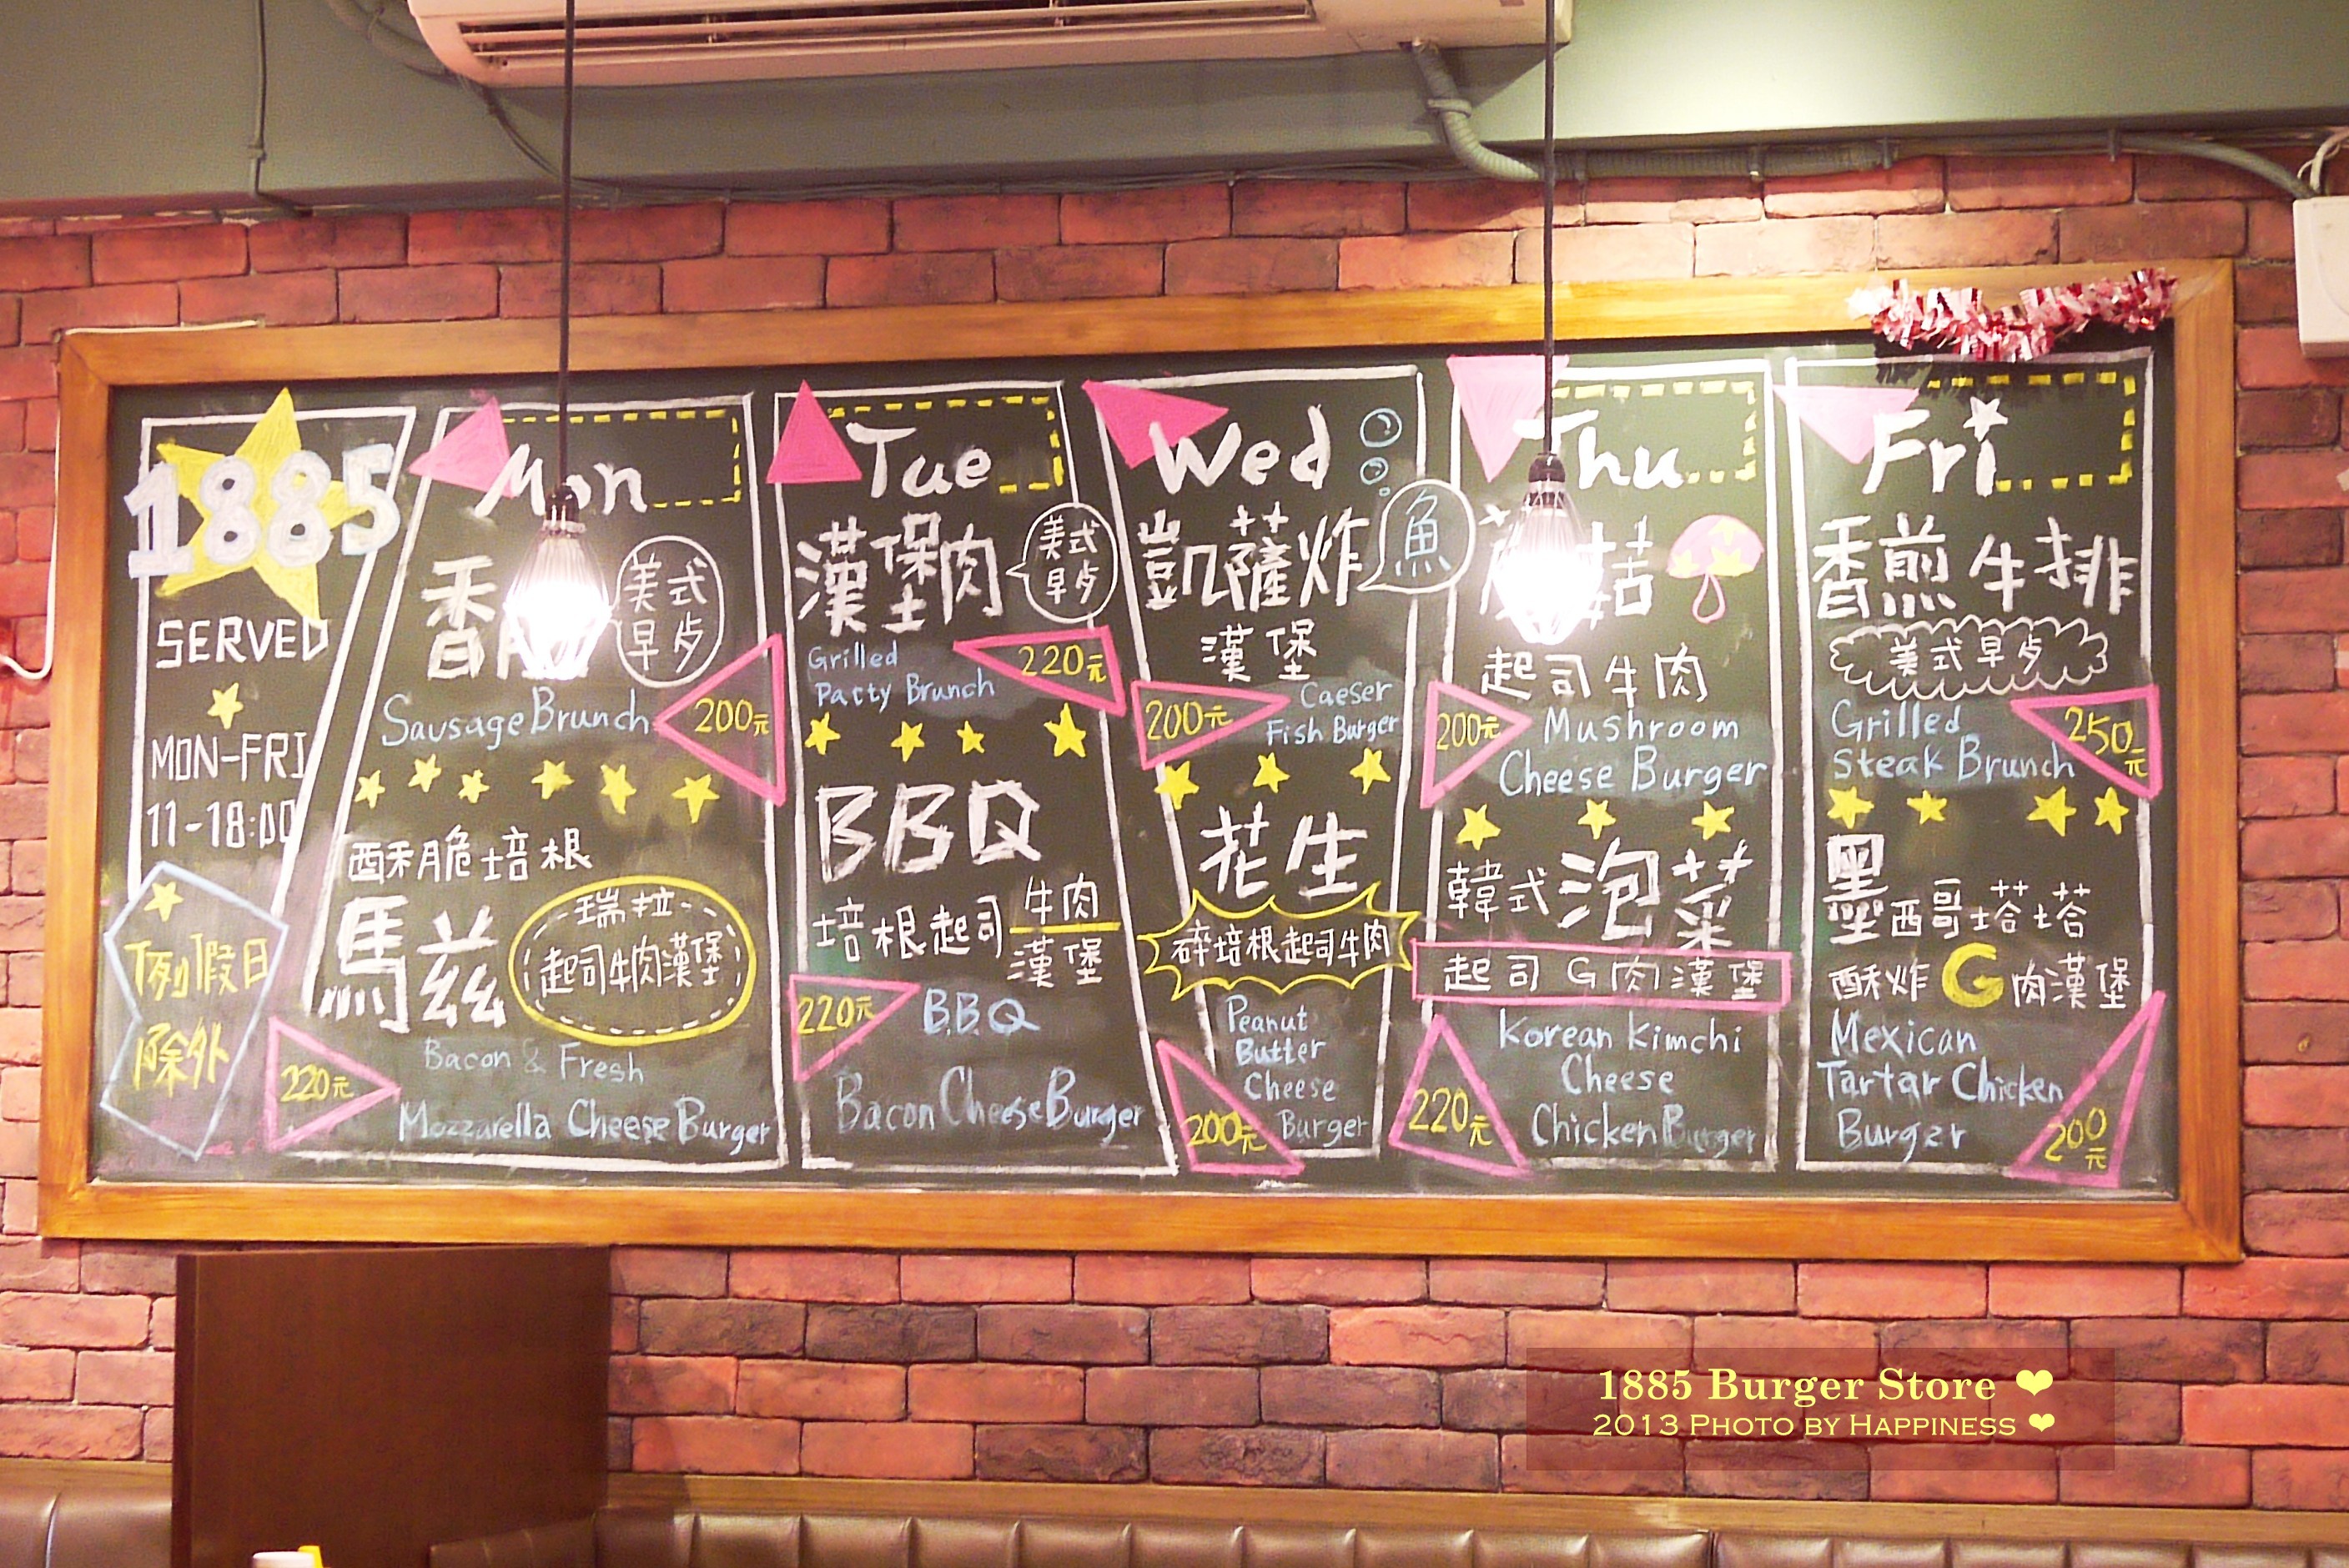 1885
SERVED
MON-FRI
11-18:00
例假日
除外
Mon
香腸
美式
早歺
Sausage Brunch
200元
酥脆培根
馬茲
瑞拉
起司牛肉漢堡
Bacon & Fresh
220元
Mozzarella Cheese Burger
Tue
漢堡肉
美式
早歺
Grilled
Patty Brunch
220元
BBQ
培根起司
牛肉
漢堡
220元
B.B.Q
Bacon Cheese Burger
Wed
凱薩炸
魚
漢堡
200元
Caeser
Fish Burger
花生
碎培根起司牛肉
Peanut
Butter
Cheese
Burger
200元
Thu
菇
起司牛肉
200元
Mushroom
Cheese Burger
韓式泡菜
起司G肉漢堡
Korean Kimchi
Cheese
Chicken Burger
220元
Fri
香煎牛排
美式早歺
Grilled
Steak Brunch
250元
墨西哥塔塔
酥炸G肉漢堡
Mexican
Tartar Chicken
Burger
200元
1885 Burger Store ❤
2013 Photo by Happiness ❤